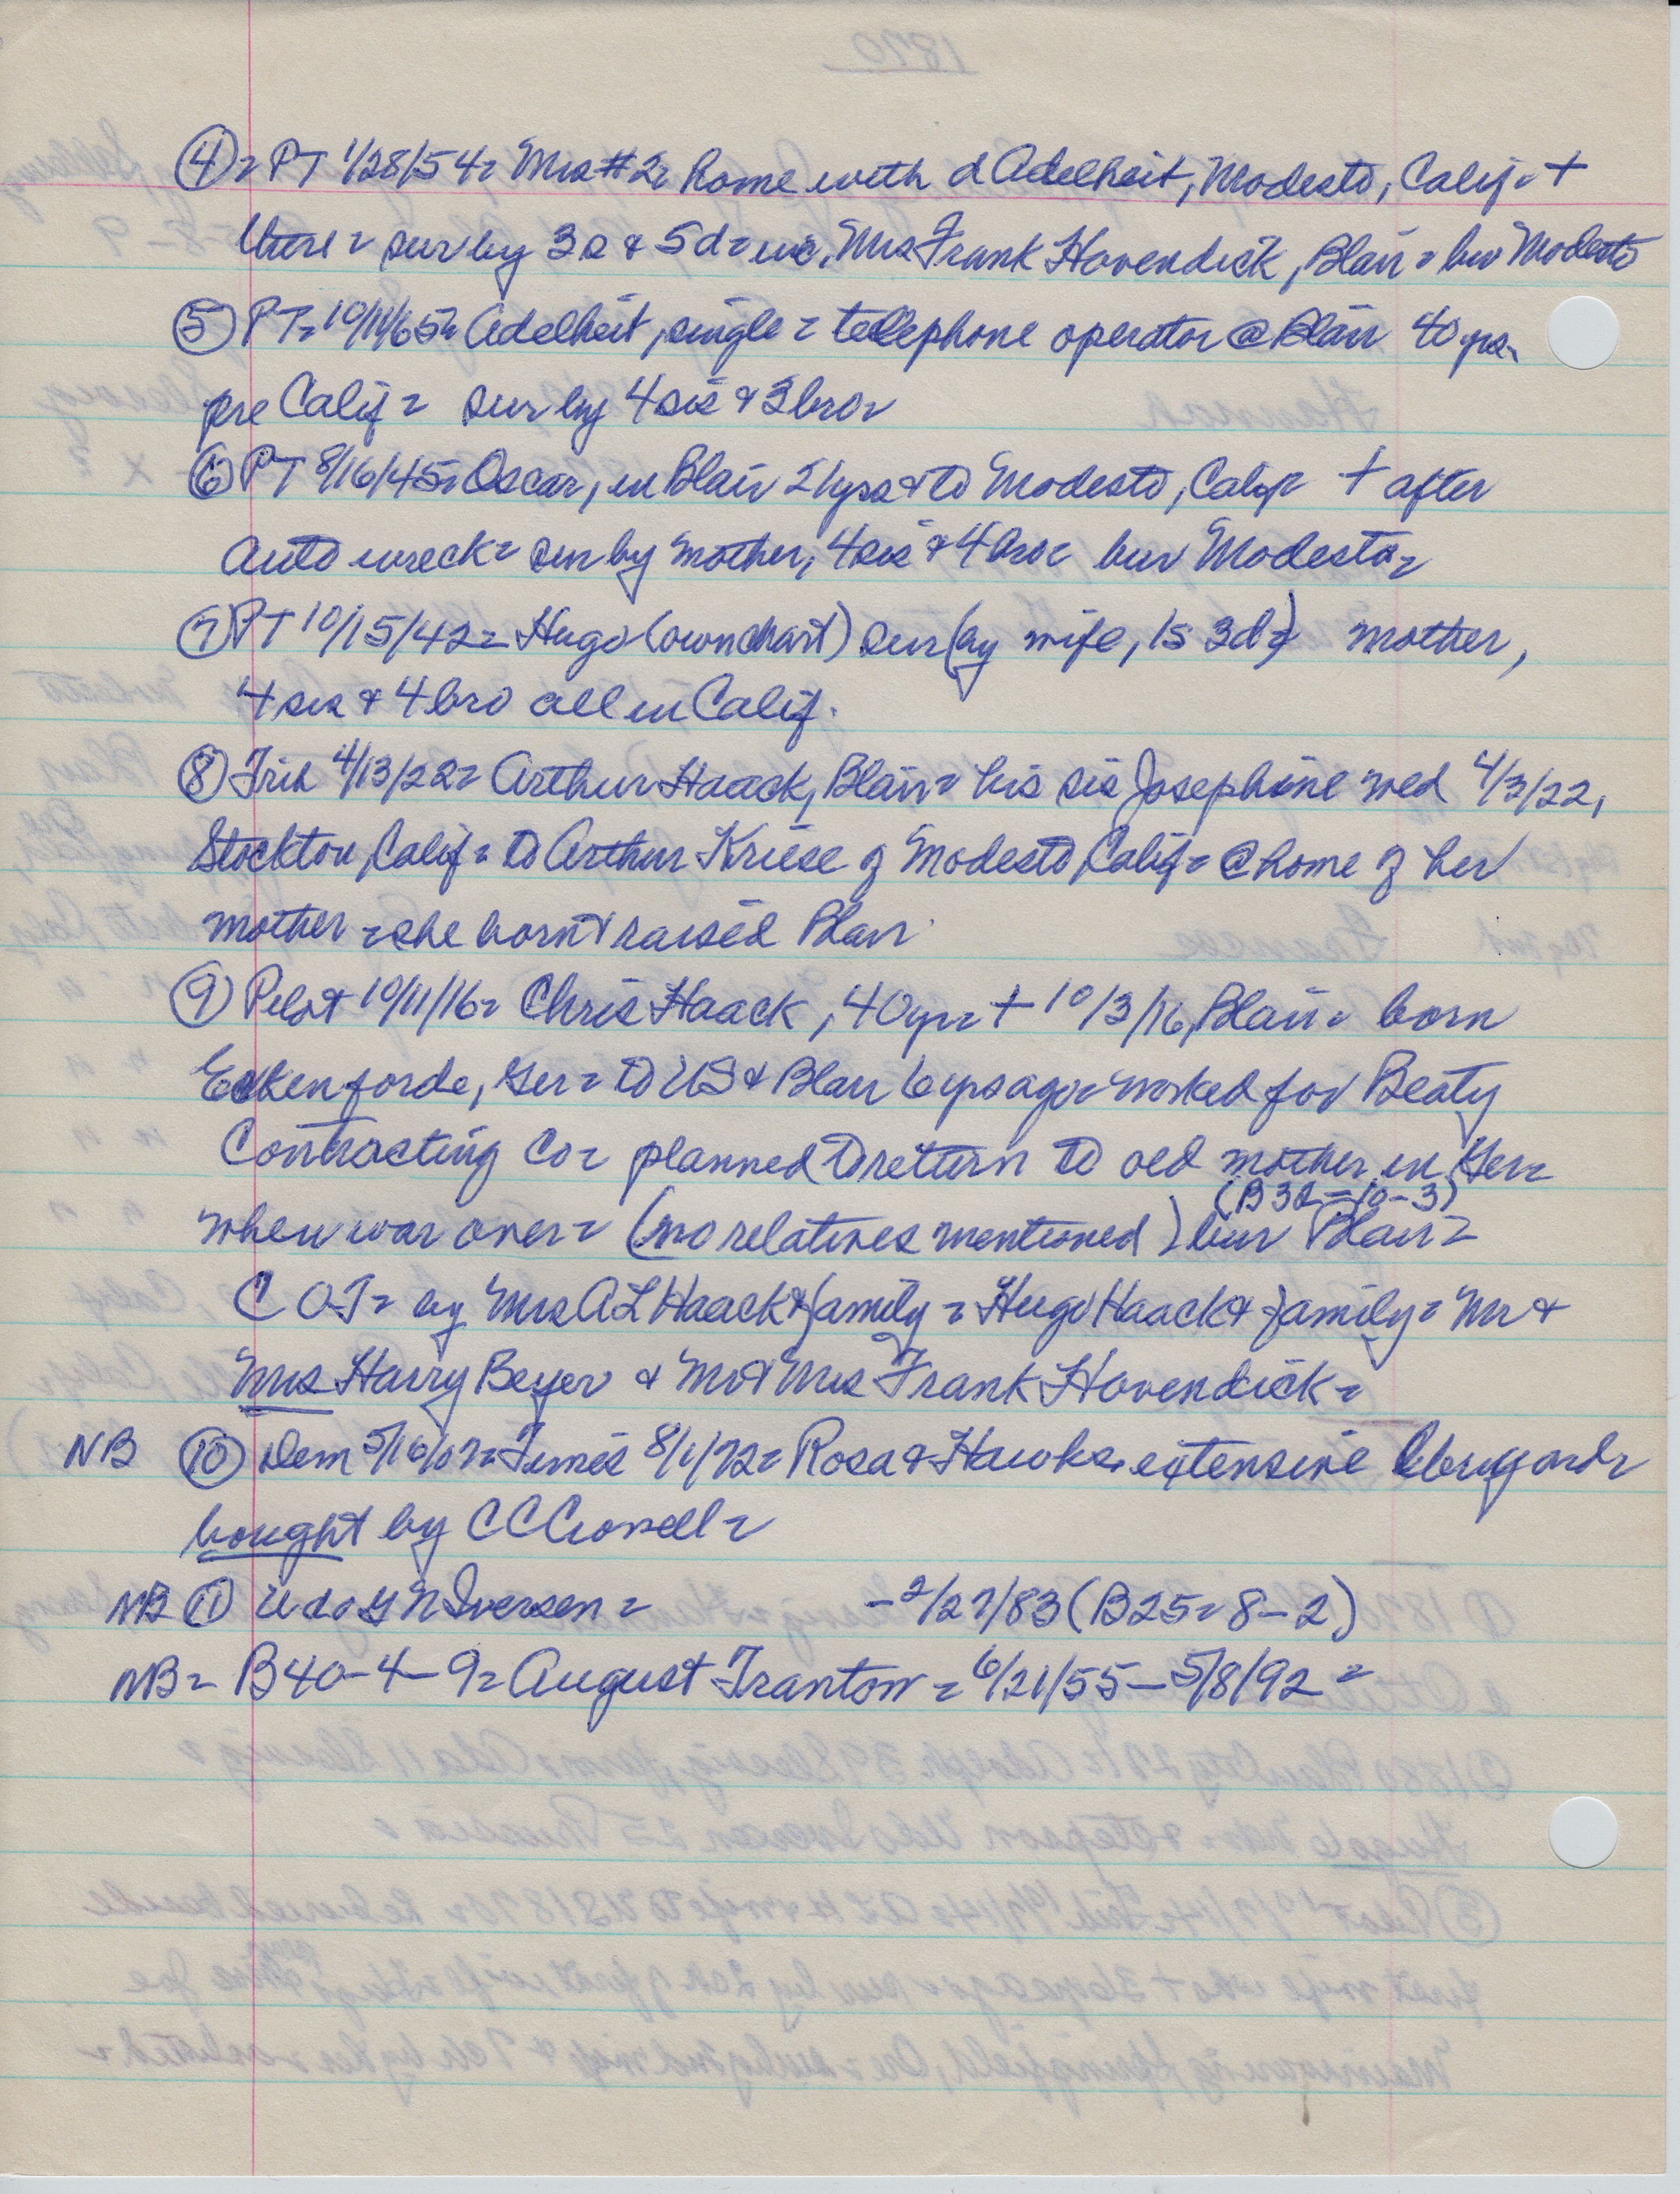 ④= PT 1/28/54= Mrs #2= home with d Adelheit, Modesto, Calif = +
there = sur by 3s & 5d = inc. Mrs Frank Hovendick, Blair = bur Modesto
⑤ PT= 10/11/65= Adelheit, single = telephone operator @ Blair 40 yrs.
pre Calif = sur by 4 sis & 3 bro=
⑥ PT 8/16/45= Oscar, in Blair 21yrs & to Modesto, Calif = + after
auto wreck = sur by mother, 4 sis & 4 bro= bur Modesto=
⑦ PT 10/15/42= Hugo (own chart) sur (by wife, 1s 3d=) mother,
4 sis & 4 bro all in Calif.
⑧ Trib 4/13/22= Arthur Haack, Blair = his sis Josephine wed 4/3/22,
Stockton, Calif = to Arthur Kriese of Modesto, Calif = @ home of her
mother = she born & raised Blair
⑨ Pilot 10/11/16= Chris Haack, 40yr= + 10/3/16, Blair = born
Eckenforde, Ger = to US & Blair 6 yrs ago = worked for Beaty
Contracting Co= planned to return to old mother in Ger=
(B32=10-3)
when war over = (no relatives mentioned) bur Blair =
C OT= by Mrs A L Haack & family = Hugo Haack & family = Mr &
Mrs Harry Beyer & Mr & Mrs Frank Hovendick =
NB ⑩ Dem 5/16/07= Times 8/1/72= Rosa & Hawks extensive
bought by C C Crowell =
NB ⑪ Udo G N Iversen = - 2/27/83 (B25= 8-2)
NB= B40-4-9= August Trantow = 6/21/55 - 5/8/92 =